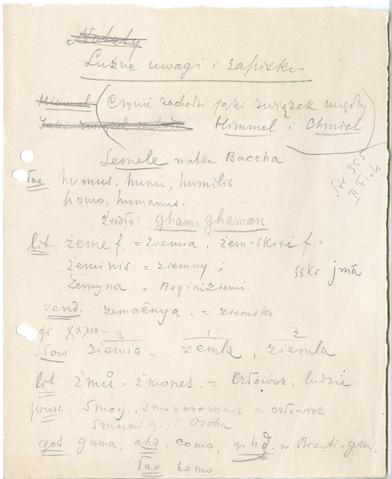 Notaty
Luźne uwagi i zapiski
Himmel (Czy nie zachodzi jaki związek między
Himmel i Chmiel)
Semele matka Baccha
łac humus, humi, humilis
homo, humanus.
źródło: gham, ghaman
lit. žeme f. = ziemia, žem-skirē f. =
žeminis = ziemny; sskr. jmā
žemyna = Bogini ziemi.
zend. zemačnya. = ziemski
gr. χαμα-
słow ziemia - zemla, ziemla
lit. žmů - žmones. = człowiek, ludzie
prus. smoy, = człowiek
= osoba
got guma, ahd. como, nhd. w Bräuti-gam.
łac homo